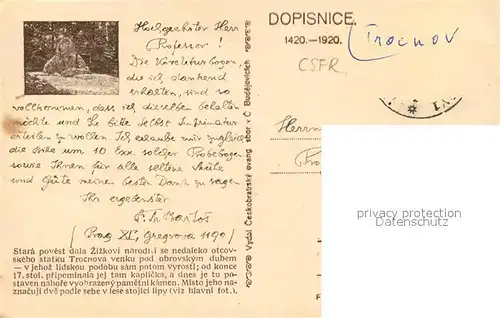 Hochgeehrter Herr
Professor !
Die Korrekturbogen,
die ich dankend
erhalten, sind so
vollkommen, dass ich dieselben behalten
möchte und Sie bitte selbst Imprimatur
erteilen zu wollen. Ich erlaube mir zugleich
die Bitte um 10 Ex. solcher Probebogen
sowie Ihnen für alle seltene Mühe
und Güte meinen besten Dank zu sagen
Ihr ergebenster
F. M. Bartoš
(Prag XI, Gregrova 1190)
Stará pověst dala Žižkovi naroditi se nedaleko otcov-
ského statku Trocnova venku pod obrovským dubem
— v jehož lidskou podobu sám potom vyrostl; od konce
17. stol. připomínala jej tam kaplička, a dnes je tu po-
staven nahoře vyobrazený památní kámen. Místo jeho na-
značují dvě podle sebe v lese stojící lípy (viz hlavní fot.).
Vydal Českobratrský evang. sbor v Č. Budějovicích
DOPISNICE.
1420.—1920.
Trocnov
CSFR
Herrn
copyright protected
philographica.de